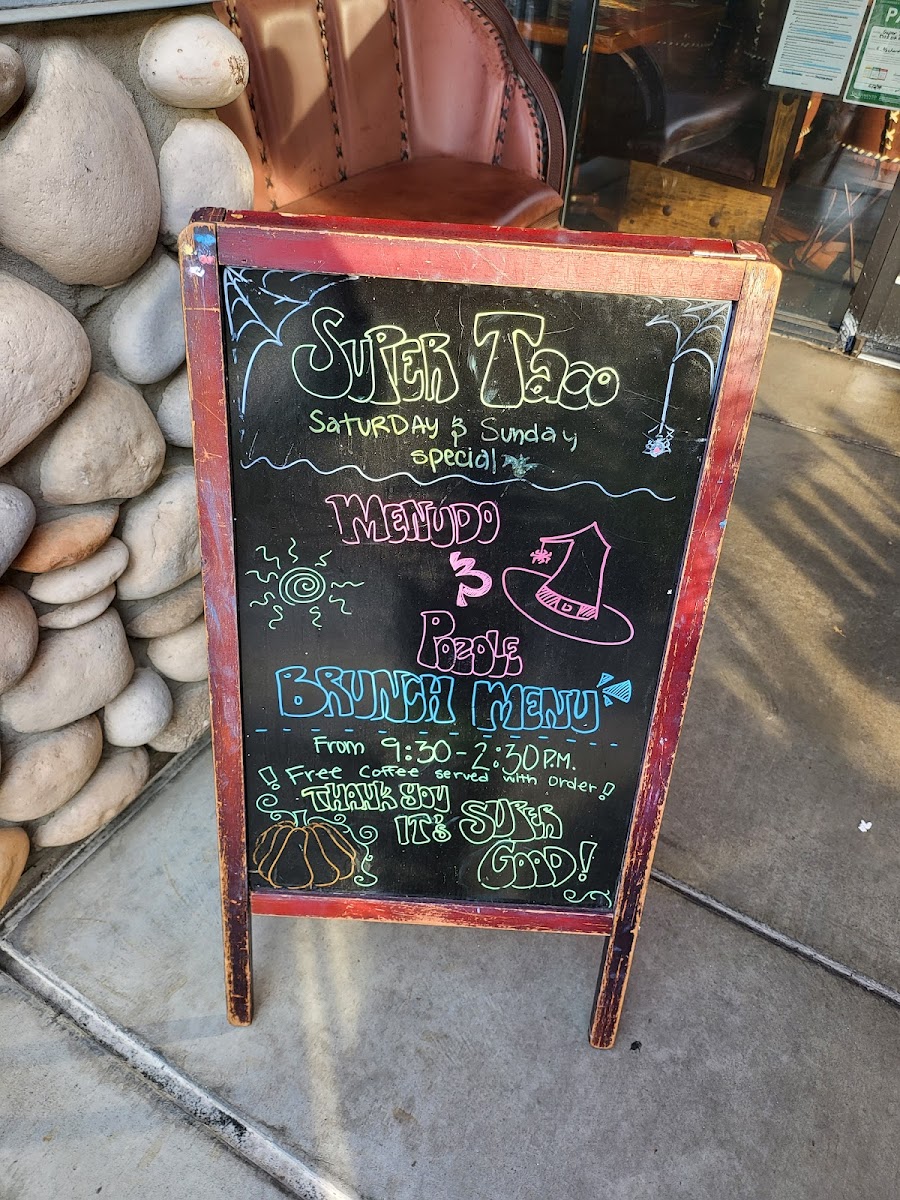 Super Taco
Saturday & Sunday
special
Menudo
&
Pozole
Brunch Menu
From 9:30-2:30 P.M.
! Free Coffee served with order!
Thank you
It's Super
Good!